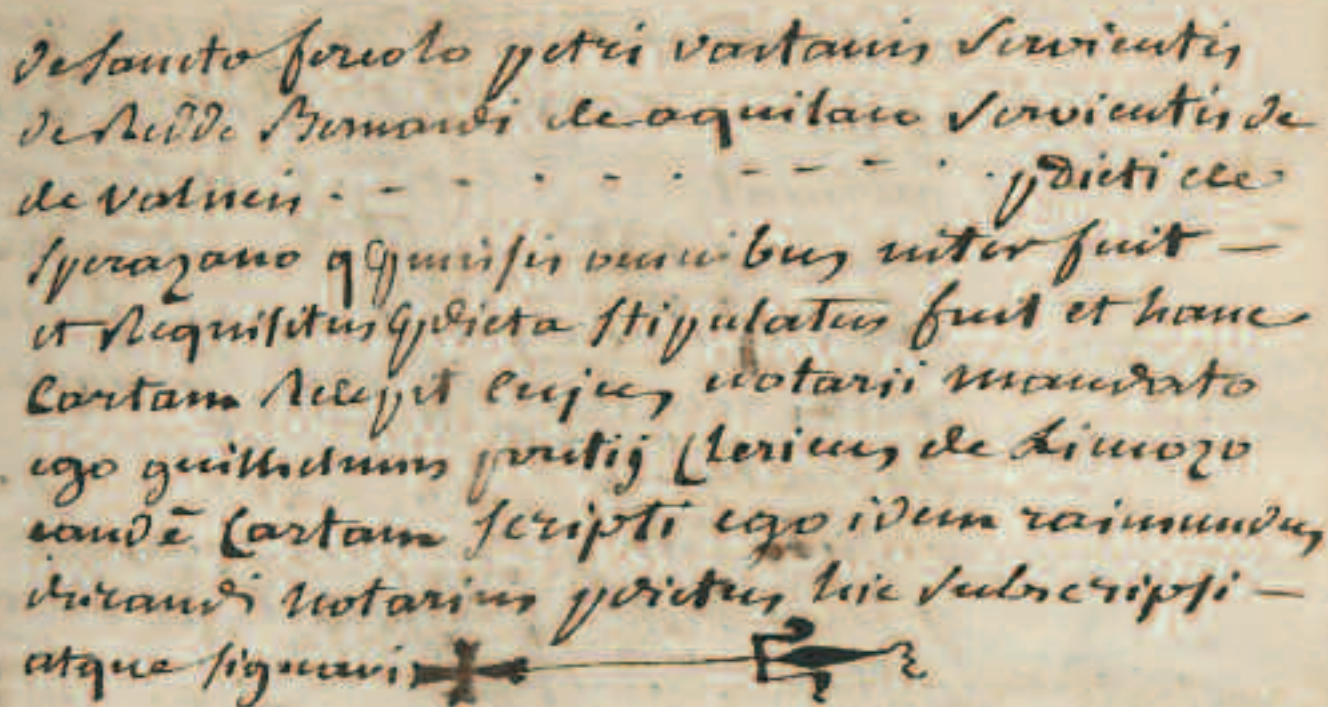 de sancto fereolo petri vartanis servientis
de Redde Bernardi de aquilaco servientis de
de valneis . - - . . . - - - . pdicti de
sperazano q pmissis omnibus inter fuit —
et Requisitus pdicta stipulatus fuit et hanc
Cartam Recepit cujus notarii mandato
ego guillielmus pontij Clericus de Limozo
eandē Cartam scripsi ego idem raimundus
durandi notarius pdictus hic subscripsi —
atque signavi